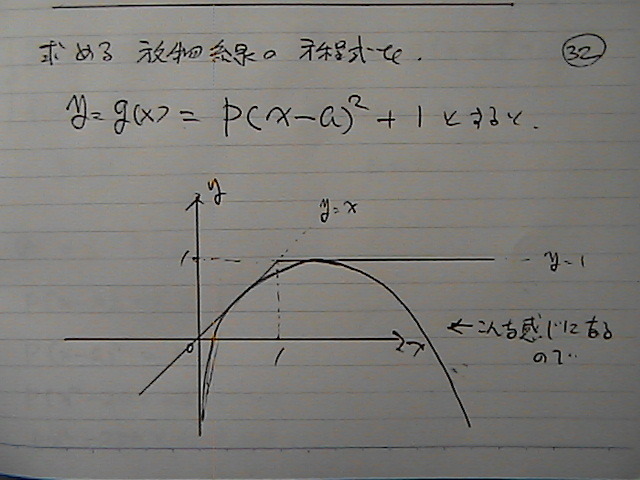 求める 放物線の 方程式を.
32
y = g(x) = p(x-a)² + 1 とすると.
y
y=x
1
y=1
0
1
x
←こんな感じになる
ので..